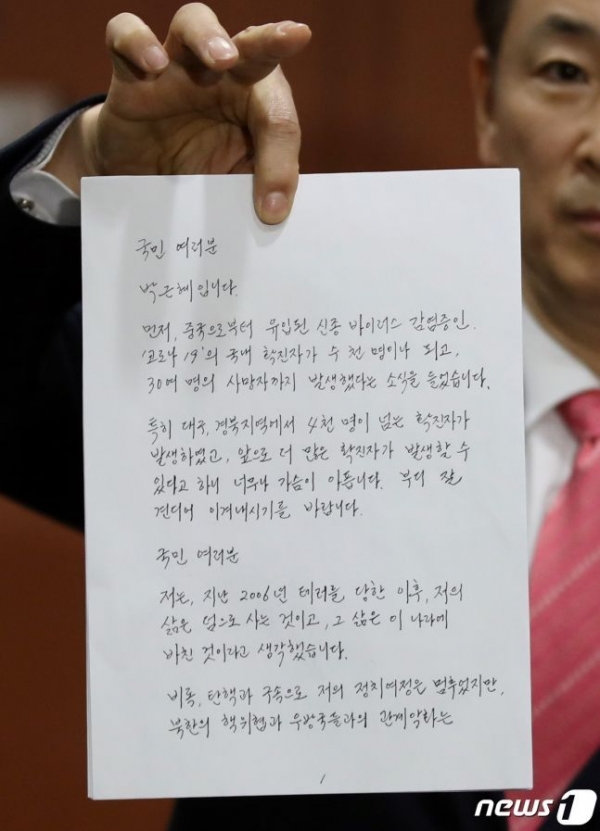 국민 여러분
박근혜입니다.
먼저, 중국으로부터 유입된 신종 바이러스 감염증인
'코로나 19'의 국내 확진자가 수 천 명이나 되고,
30여 명의 사망자까지 발생했다는 소식을 들었습니다.
특히 대구, 경북지역에서 4천 명이 넘는 확진자가
발생하였고, 앞으로 더 많은 확진자가 발생할 수
있다고 하니 너무나 가슴이 아픕니다. 부디 잘
견디어 이겨내시기를 바랍니다.
국민 여러분
저는, 지난 2006년 테러를 당한 이후, 저의
삶은 덤으로 사는 것이고, 그 삶은 이 나라에
바친 것이라고 생각했습니다.
비록, 탄핵과 구속으로 저의 정치여정은 멈추었지만,
북한의 핵위협과 우방국들과의 관계악화는
1
news1